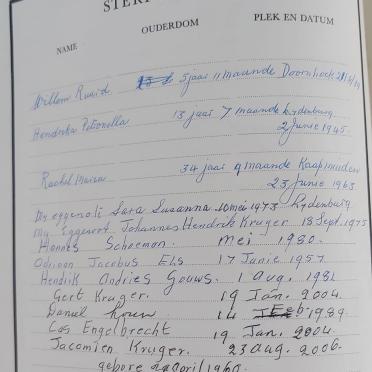 STERF
NAME
OUDERDOM
PLEK EN DATUM
Willem Ruaid 5 jaar 11 maande Doornhoek
Hendrika Petronella 13 jaar 7 maande Lydenburg
2 Junie 1945
Rachel Maria 34 jaar 9 maande Kaapmuiden
23 Junie 1963
My eggenoti Sara Susanna 10 mei 1973 Lydenburg
My Eggenoot Johannes Hendrik Kruger 18 Sept. 1975
Hannes Scheeman. Mei 1980.
Adriaan Jacobus Els 17 Junie 1957
Hendrik Andries Gouws. 1 Aug. 1981
Gert Kruger. 19 Jan. 2004.
Daniel Louw 14 Feb. 1989.
Cos Engelbrecht 19 Jan. 2004.
Jacomien Kruger. 23 Aug. 2006.
gebore April 1960.